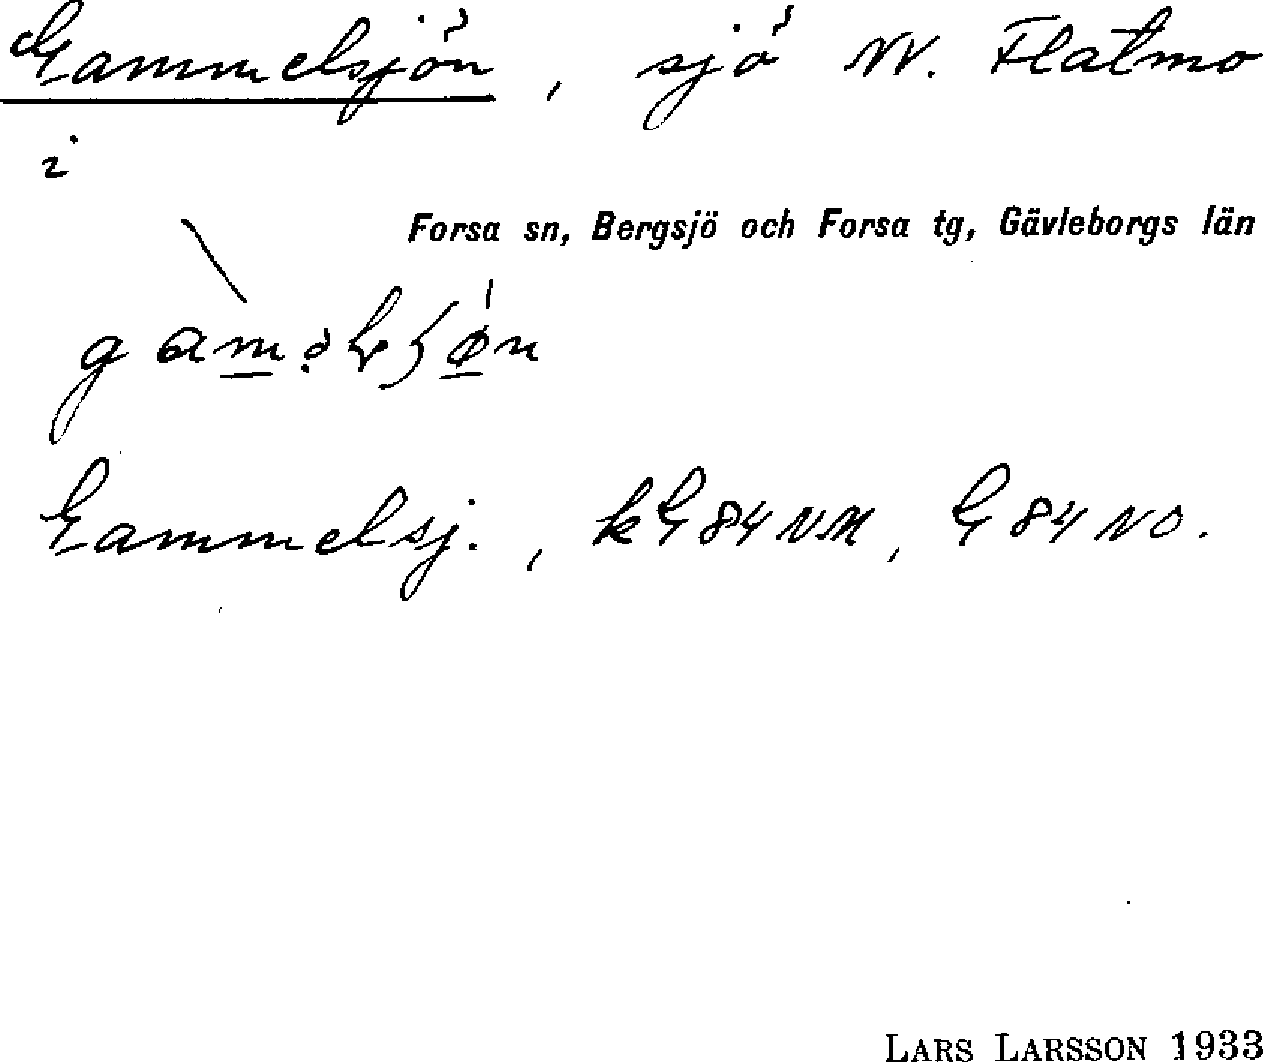 Gammelsjön, sjö NV. Flatmo
i
Forsa sn, Bergsjö och Forsa tg, Gävleborgs län
Gammelsj., kG84NM, G84NO.
LARS LARSSON 1933